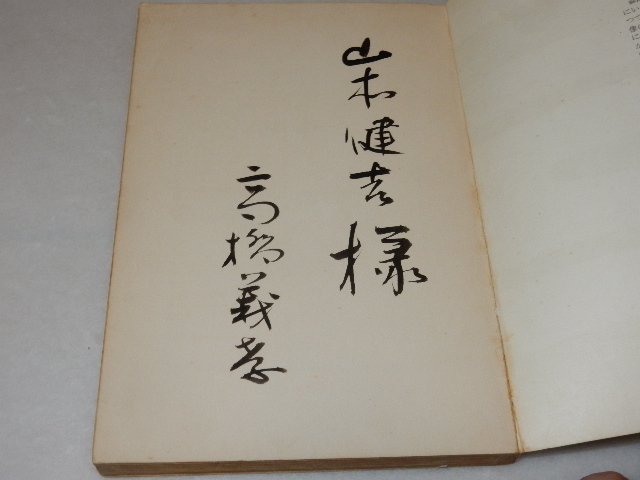 山本健吉様
高橋義孝